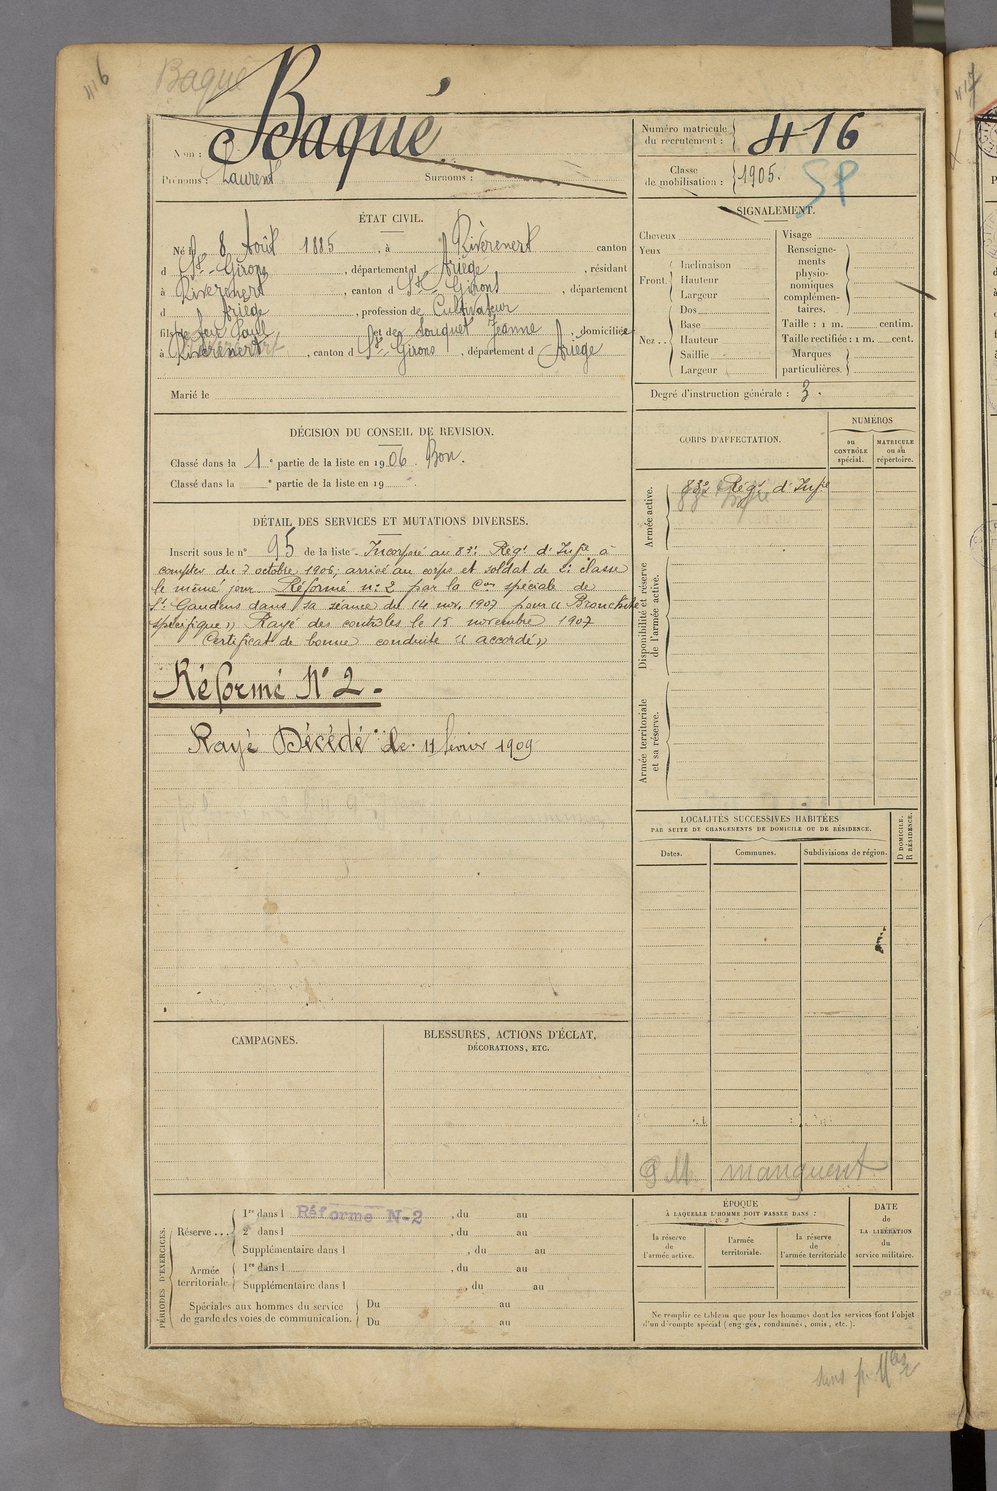 416
Baqué
Nom : Baqué
Prénoms : Laurent Surnoms :
Numéro matricule du recrutement : 416
Classe de mobilisation : 1905.
SP
ÉTAT CIVIL.
Né le 8 Août 1885, à Rivèrenert canton
d St-Girons, département d Ariège, résidant
à Rivèrenert, canton d St-Girons, département
d Ariège, profession de Cultivateur
fils de feu Paul et de Souquet Jeanne, domiciliée
à Rivèrenert, canton d St-Girons, département d Ariège
Marié le
SIGNALEMENT.
Cheveux
Yeux
Front. Inclinaison
Hauteur
Largeur
Nez.. Dos
Base
Hauteur
Saillie
Largeur
Visage
Renseigne-
ments
physio-
nomiques
complémen-
taires.
Taille : 1 m. centim.
Taille rectifiée : 1 m. cent.
Marques
particulières.
Degré d'instruction générale : 3.
DÉCISION DU CONSEIL DE REVISION.
Classé dans la 1e partie de la liste en 1906. Bon.
Classé dans la e partie de la liste en 19
DÉTAIL DES SERVICES ET MUTATIONS DIVERSES.
Inscrit sous le n° 95 de la liste. Incorporé au 83e Régt d'Infie à
compter du 7 octobre 1906, arrivé au corps et soldat de 2e classe
le même jour. Réformé n° 2 par la Con spéciale de
St Gaudens dans sa séance du 14 nov. 1907 pour « Bronchite
spécifique » Rayé des contrôles le 15 novembre 1907
Certificat de bonne conduite « accordé »
Réformé N° 2.
Rayé Décédé le 11 février 1909
CORPS D'AFFECTATION.
NUMÉROS
au
CONTRÔLE
spécial.
MATRICULE
ou au
répertoire.
Armée active.
83e Régt d'Infie
Disponibilité et réserve
de l'armée active.
Armée territoriale
et sa réserve.
LOCALITÉS SUCCESSIVES HABITÉES
PAR SUITE DE CHANGEMENTS DE DOMICILE OU DE RÉSIDENCE.
Dates.
Communes.
Subdivisions de région.
D DOMICILE.
R RÉSIDENCE.
manquent
CAMPAGNES.
BLESSURES, ACTIONS D'ÉCLAT,
DÉCORATIONS, ETC.
PÉRIODES D'EXERCICES.
Réserve....
1re dans l Réformé N-2, du au
2e dans l , du au
Supplémentaire dans l , du au
Armée
territoriale
1re dans l , du au
Supplémentaire dans l , du au
Spéciales aux hommes du service
de garde des voies de communication.
Du au
Du au
ÉPOQUE
À LAQUELLE L'HOMME DOIT PASSER DANS :
la réserve
de
l'armée active.
l'armée
territoriale.
la réserve
de
l'armée territoriale
DATE
de
LA LIBÉRATION
du
service militaire.
Ne remplir ce tableau que pour les hommes dont les services font l'objet
d'un décompte spécial (engagés, condamnés, omis, etc.).
417